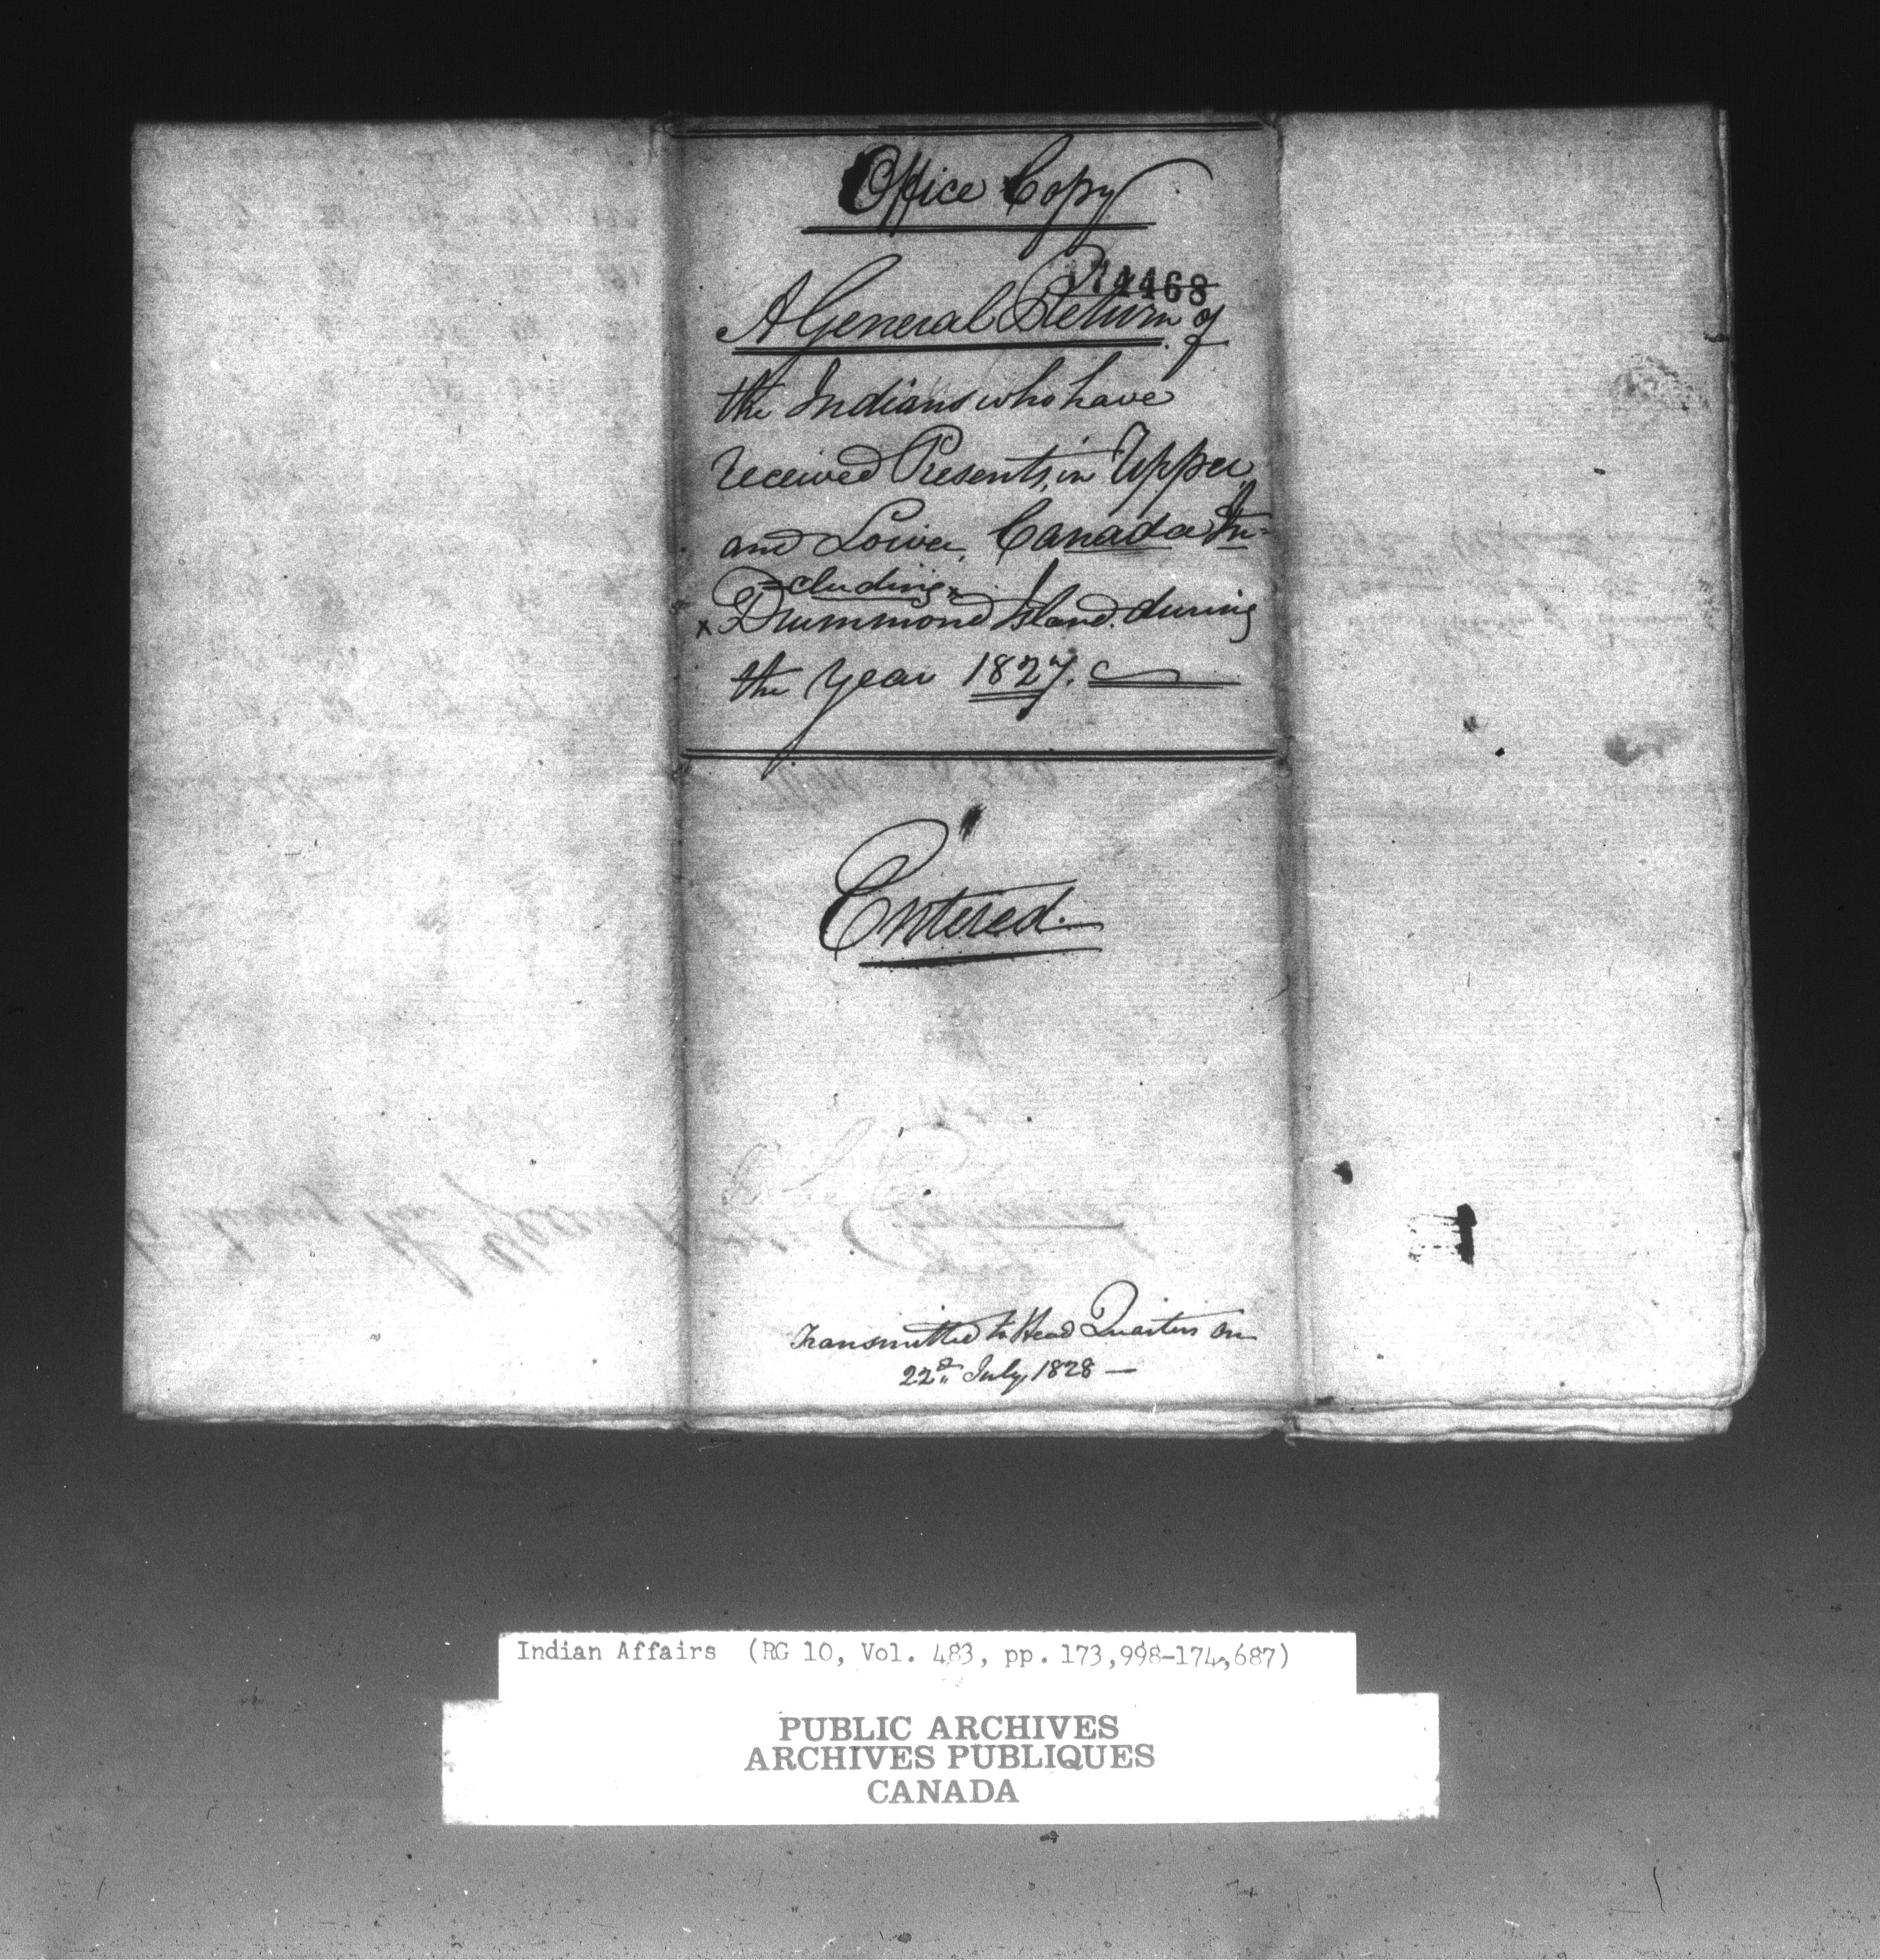 Office Copy
174468
A General Return of
the Indians who have
received Presents, in Upper
and Lower Canada In-
=cluding
x Drummond Island. during
the Year 1827.
Entered.
Transmitted to Head Quarters on
22d July 1828 —
Indian Affairs (RG 10, Vol. 483, pp. 173,998-174,687)
PUBLIC ARCHIVES
ARCHIVES PUBLIQUES
CANADA